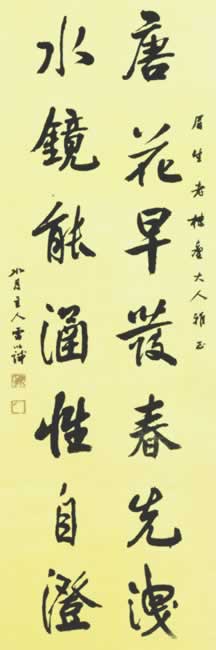 眉生老棣臺大人雅正
唐花早發春先洩
水鏡能涵性自澄
主人雷以諴